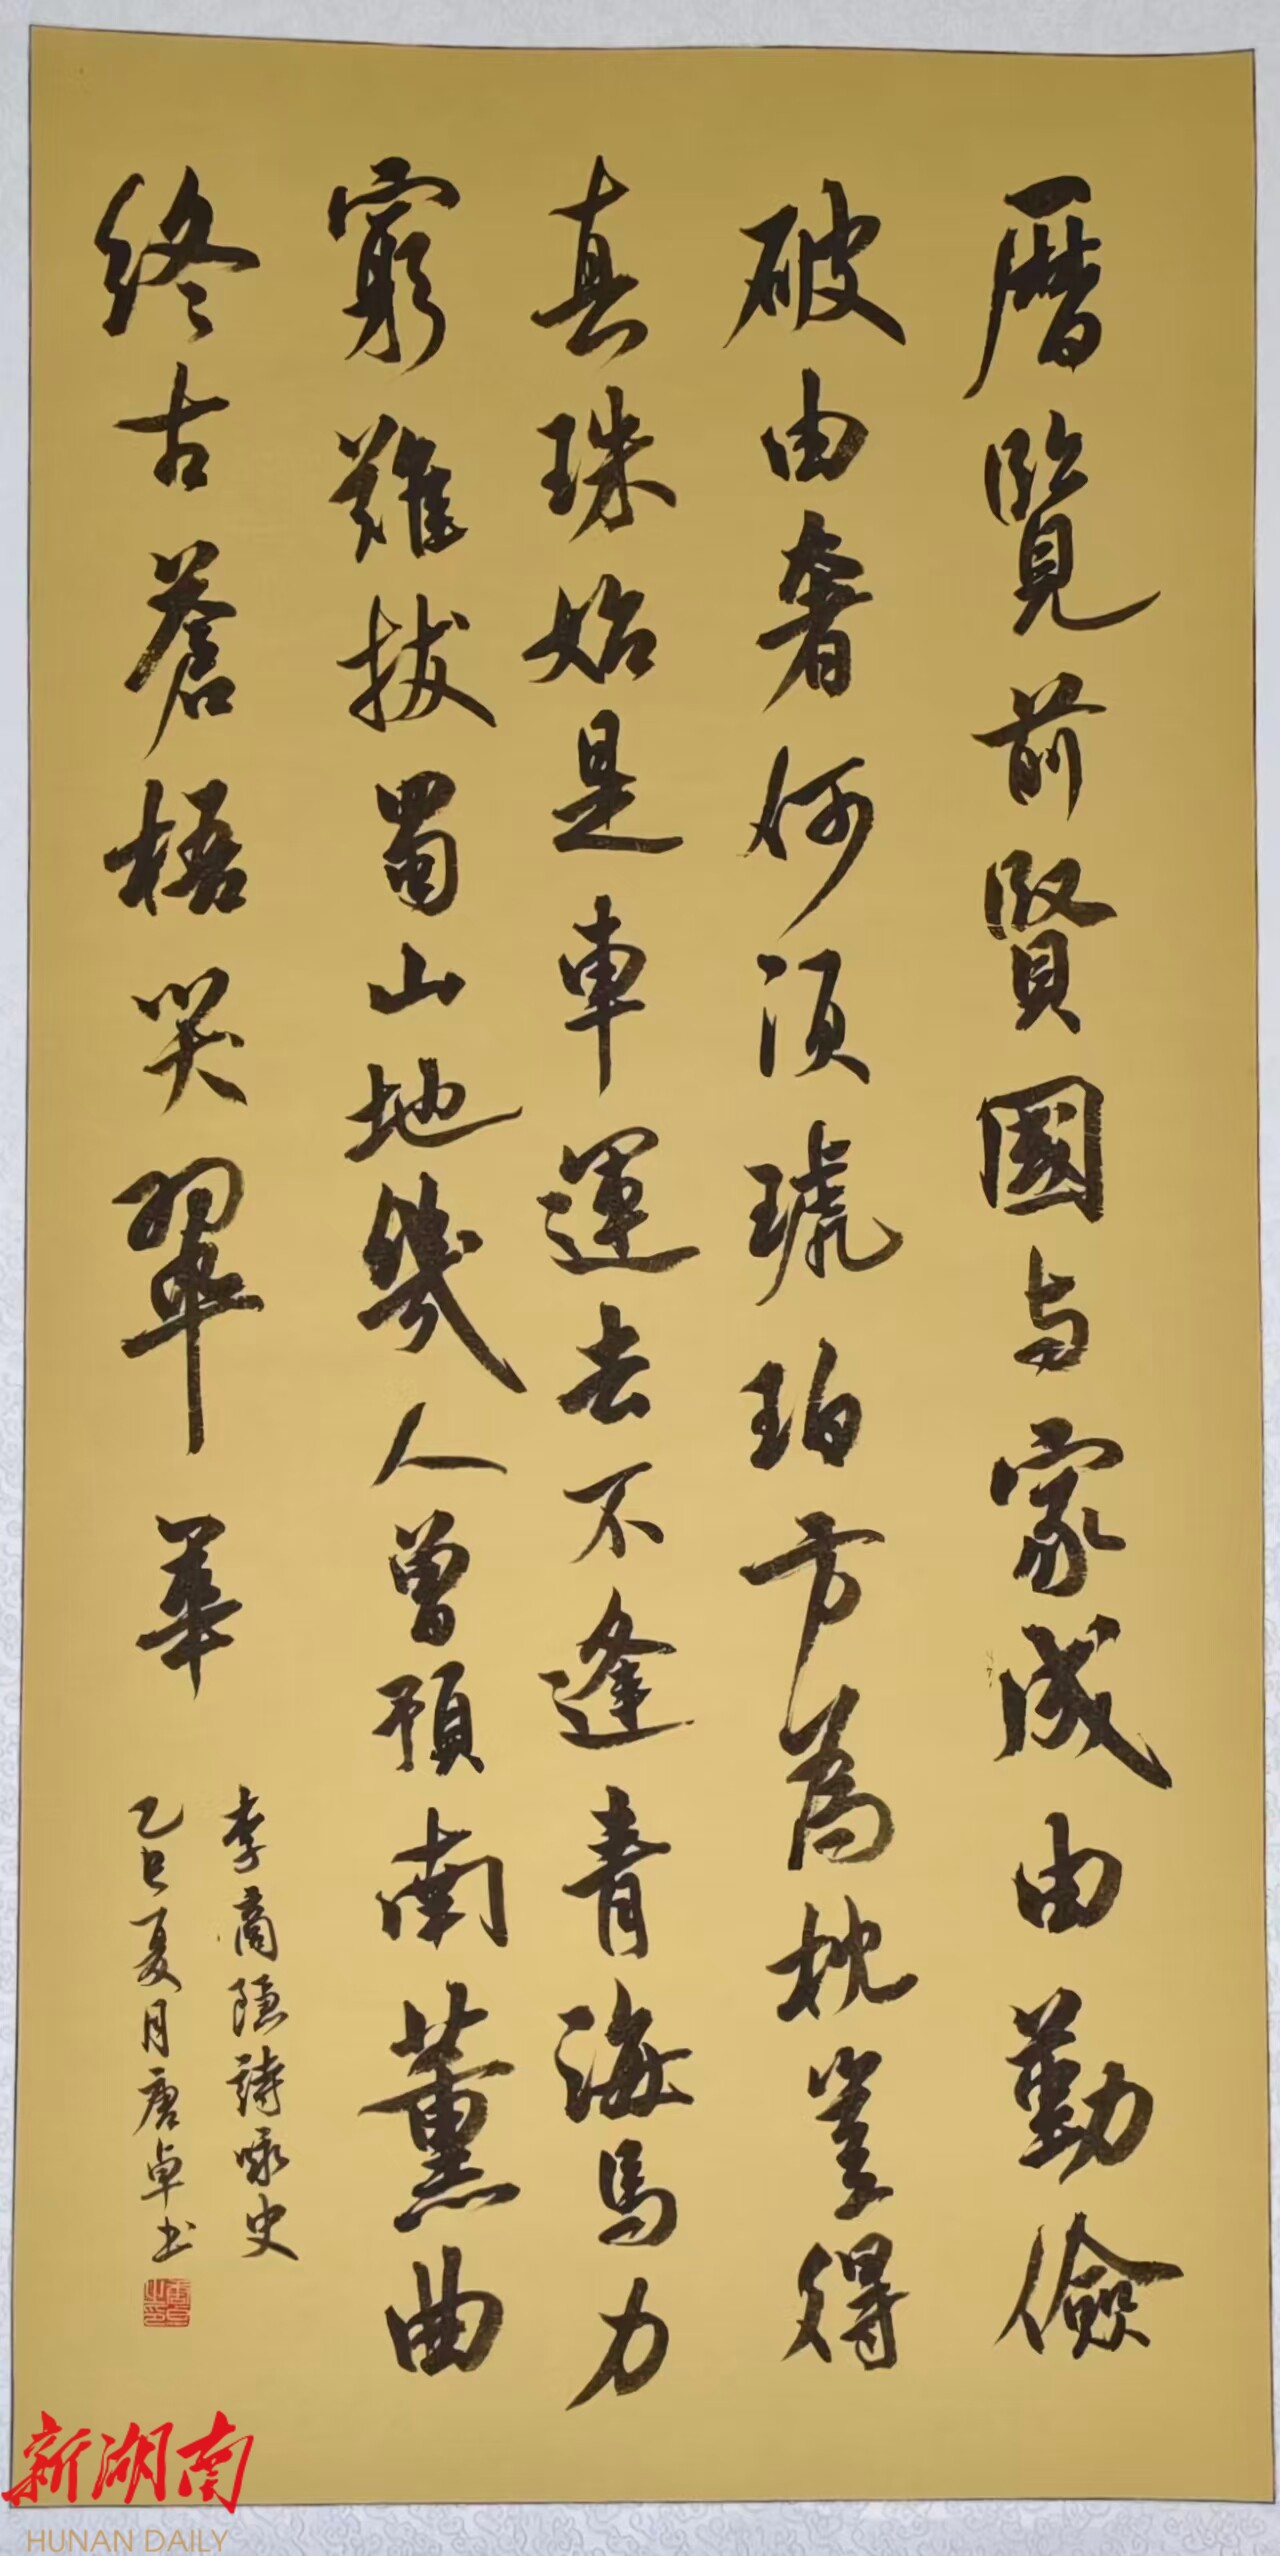 曆覽前賢國与家成由勤儉
破由奢何須琥珀方為枕豈得
真珠始是車運去不逢青海馬力
窮難拔蜀山地幾人曾預南薰曲
終古蒼梧哭翠華
李商隱詩咏史
乙巳夏月唐卓书
唐卓之印
新湖南
HUNAN DAILY